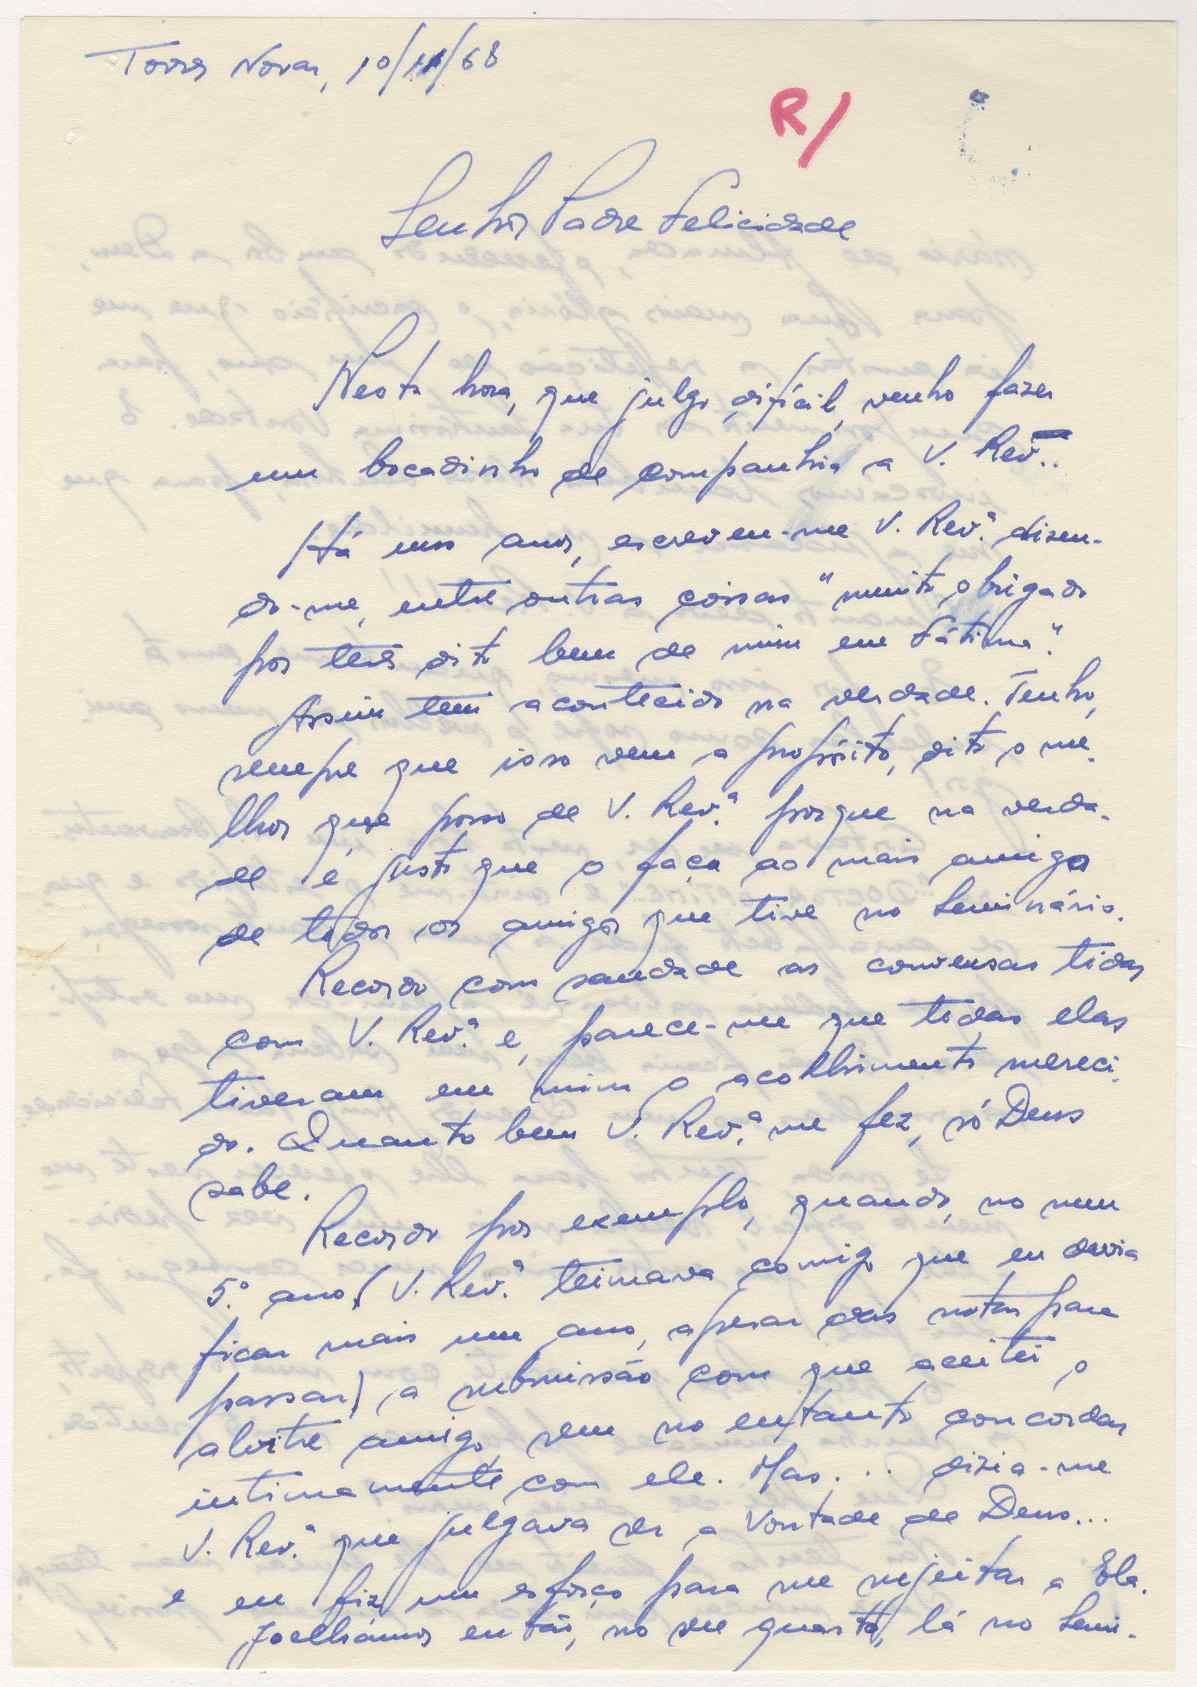 Torres Novas, 10/11/68
R/
Senhor Padre Felicidade
Nesta hora, que julgo difícil, venho fazer
um bocadinho de companhia a V. Rev.ª.
Há uns anos, escreveu-me V. Rev.ª dizen-
do-me, entre outras coisas "muito obrigado
por teres dito bem de mim em Fátima".
Assim tem acontecido na verdade. Tenho,
sempre que isso vem a propósito, dito o me-
lhor que posso de V. Rev.ª porque na verda-
de é justo que o faça ao mais amigo
de todos os amigos que tive no Seminário.
Recordo com saudade as conversas tidas
com V. Rev.ª e, parece-me que todas elas
tiveram em mim o acolhimento mereci-
do. Quanto bem V. Rev.ª me fez, só Deus
sabe.
Recordo por exemplo, quando, no meu
5.º ano, (V. Rev.ª teimava comigo que eu devia
ficar mais um ano, apesar das notas para
passar) a submissão com que aceitei o
alvitre amigo, sem no entanto concordar
intimamente com ele. Mas... dizia-me
V. Rev.ª que julgava ser a Vontade de Deus...
e eu fiz um esforço para me sujeitar a Ela.
Joelhámos então, no seu quarto, lá no Semi-